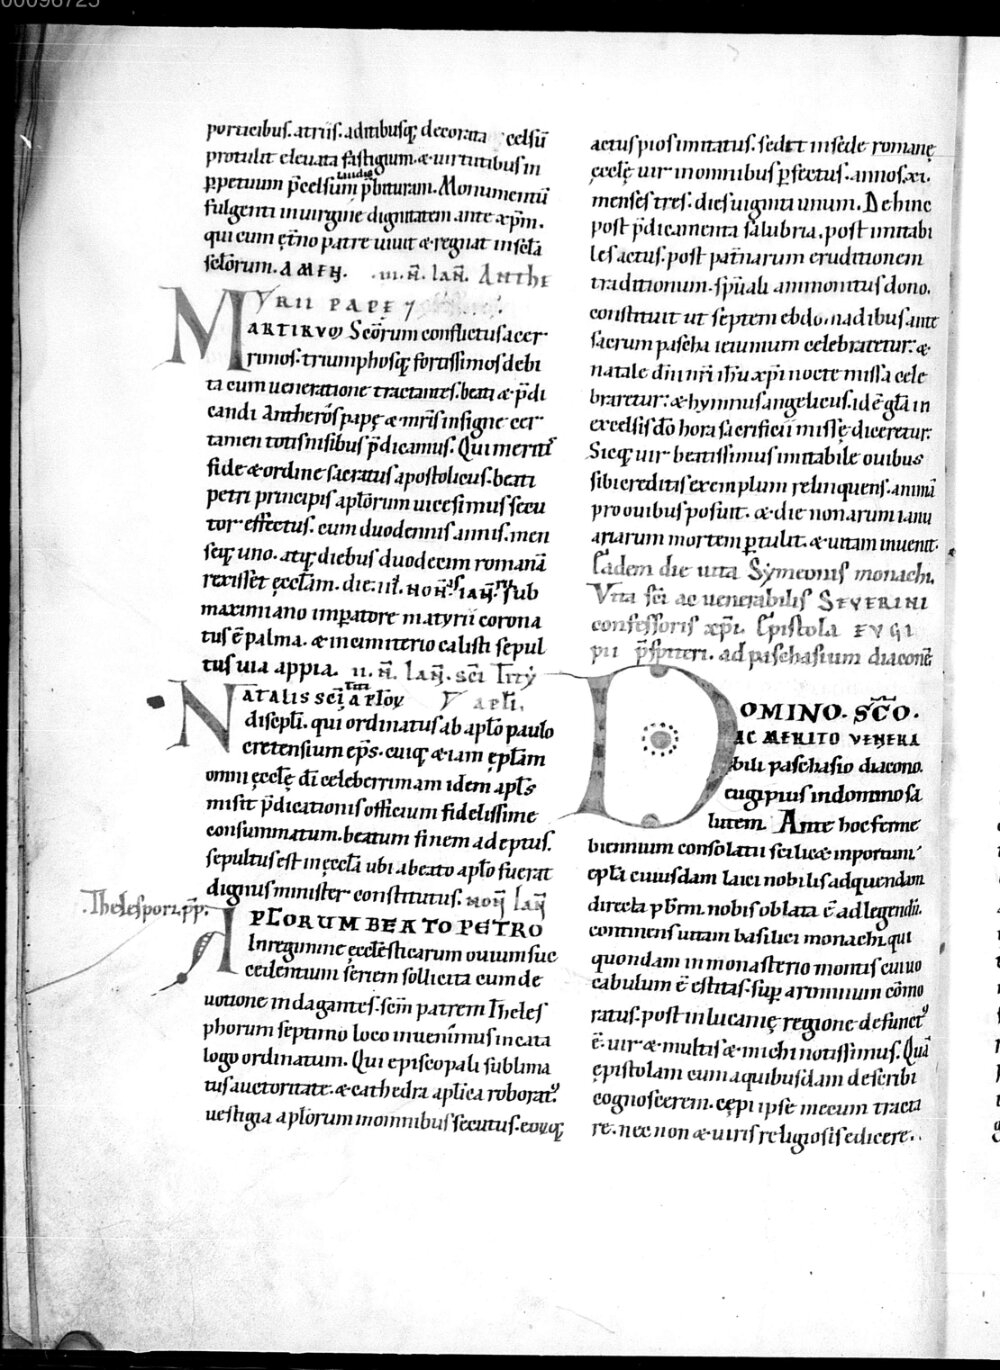 00098725
porticibus. atriis. aditibusq; decorata excelsū
protulit eleuata fastigium. & uirtutibus in
ꝑpetuum p̄celsum p̄bituram. Monumentū
fulgenti in uirgine dignitatem ante xp̄m.
qui cum ęt̄no patre uiuit & regnat in sc̄la
sc̄lorum. AMEN. .III. N̄. IAN̄. Anthe
MYRII PAPE 7
ARTIRVM Sc̄orum conflictus acer
rimos. triumphosq; fortissimos debi
ta cum ueneratione tractantes. beati & p̄di
candi Antheros papę & mr̄is insigne cer
tamen totis nisibus p̄dicamus. Qui meriti
fide & ordine sacratus apostolicus. beati
petri principis apl̄orum uicesimus secu
tor effectus. cum duodennis annis. men
seq; uno. atq; diebus duodecim romanā
rexisset ęccl̄am. die. III. NON̄. IAN̄. sub
maximiano imperatore matyrii corona
tus ē palma. & in cimiterio calisti sepul
tus uia appia. II. N̄. IAN̄. sc̄i Tity
NATALIS sc̄i Titi apl̄oꝝ apl̄i.
discipl̄i. qui ordinatus ab apl̄o paulo
cretensium ep̄s. cuiq; & iam ępl̄am
omni ęccl̄ę dī celeberrimam idem apl̄s
misit p̄dicationis officium fidelissime
consummatum. beatum finem adeptus.
sepultus est in ęccl̄a ubi a beato apl̄o fuerat
dignus minister constitutus. NON̄ IAN̄
.Thelespori. pp̄.
APL̄ORUM BEATO PETRO
In regimine ęccl̄esticarum ouium suc
cedentium seriem sollicita cum de
uotione indagantes. sc̄m patrem Theles
phorum septimo loco inuenimus in cata
logo ordinatum. Qui episcopali sublima
tus auctoritate. & cathedra apl̄ica roborat'
uestigia apl̄orum in omnibus secutus. eoꝝq;
actus pios imitatus. sedit in sede romanę
ęccl̄ę uir in omnibus ꝑfectus. annos. xi.
menses tres. dies uiginti unum. Dehinc
post p̄dicamenta salubria. post imitabi
les actus. post pat̄narum eruditionem
traditionum. sp̄uali ammonitus dono.
constituit ut septem ebdomadibus ante
sacrum pascha ieiunium celebraretur. &
natale dn̄i nr̄i ih̄u xp̄i nocte missa cele
braretur. & hymnus angelicus. id ē gl̄a in
excelsis dō hora sacrificii missę diceretur.
Sicq; uir beatissimus imitabile ouibus
sibi creditis exemplum relinquens. animā
pro ouibus posuit. & die nonarum ianu
ariarum mortem ꝑtulit. & uitam inuenit.
Eadem die uita Symeonis monachi.
Vita sc̄i ac uenerabilis SEVERINI
confessoris xp̄i. Epistola EVGI
pii p̄sp̄iteri. ad paschasium diaconē
DOMINO. SC̄O.
AC MERITO VENERA
bili paschasio diacono.
eugipius in domino sa
lutem. Ante hoc ferme
biennium consolatu scilic& inportuni
epl̄a cuiusdam laici nobilis ad quendam
directa pbr̄m. nobis oblata ē ad legendū.
continens uitam basilici monachi. qui
quondam in monasterio montis cui uo
cabulum ē estitas. suꝑ ariminum cōmo
ratus. post in lucanię regione defunct'
ē. uir & multis & michi notissimus. Quā
ępistolam cum a quibusdam describi
cognoscerem. cępi ipse mecum tracta
re. nec non & uiris religiosis edicere.